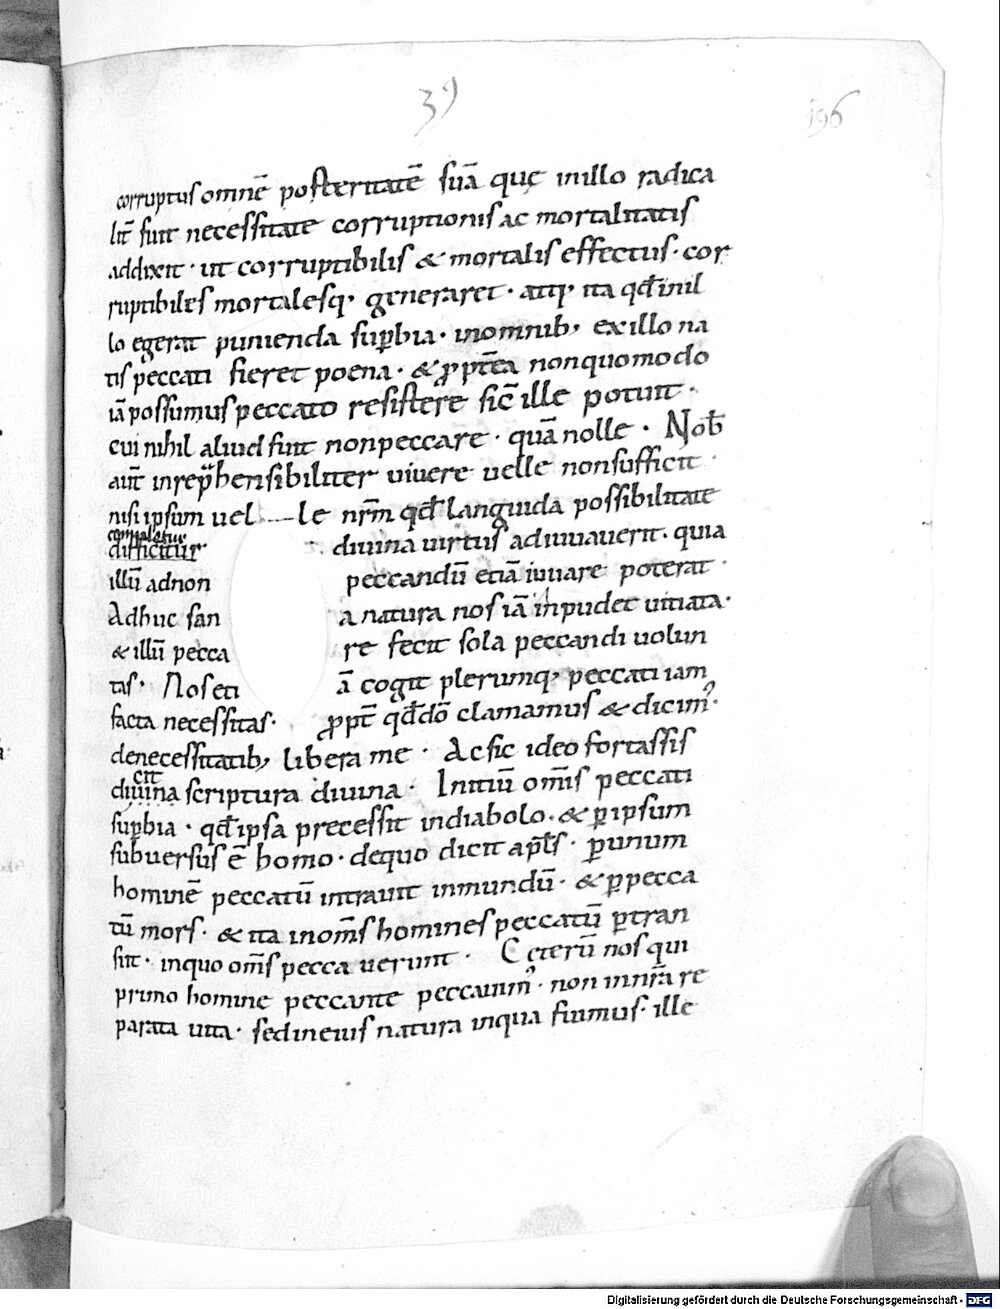 39
196
corruptus omnē posteritatē suā quę inillo radica
lit̄ fuit necessitate corruptionis ac mortalitatis
addixit · ut corruptibilis & mortalis effectus · cor
ruptibiles mortalesq; generaret · atq; ita qđ inil
lo egerat punienda suꝑbia · inomnib; exillo na
tis peccati fieret poena · & ꝓpt̄ea nonquomodo
iā possumus peccato resistere sic̄ ille potuit ·
cui nihil aliud fuit nonpeccare · quā nolle · Nob̄
aut̄ inrep̄hensibiliter uiuere uelle nonsufficit ·
nisi ipsum uel le nr̄m qđ languida possibilitate
difficitur diuina uirtus adiuuauerit · quia
illū adnon peccandū etiā iuuare poterat ·
Adhuc san a natura nos iā inpudet uitiata ·
& illū pecca re fecit sola peccandi uolun
tas · Nos eti ā cogit plerumq; peccati iam
facta necessitas · ꝓpt̄ qđ dō clamamus & dicim᾿ ·
denecessitatib; libera me · Ac sic ideo fortassis
cit
diuina scriptura diuina · Initiū om̄is peccati
suꝑbia · qđ ipsa precessit indiabolo · & ꝑ ipsum
subuersus ē homo · dequo dicit apl̄s · ꝑunum
hominē peccatū intrauit inmundū · & ꝑpecca
tū mors · & ita inom̄s homines peccatū ꝑtran
siit · inquo om̄s pecca uerunt · Ceterū nos qui
primo homine peccante peccauim᾿ · non innr̄a re
parata uita · sed ineius natura inqua fuimus · ille
Digitalisierung gefördert durch die Deutsche Forschungsgemeinschaft - DFG